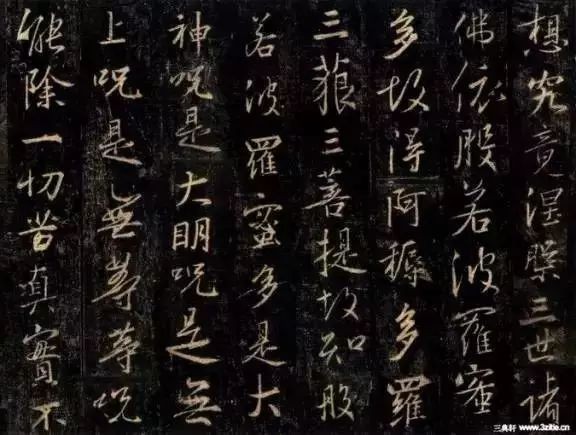 想究竟涅槃三世諸
佛依般若波羅蜜
多故得阿耨多羅
三藐三菩提故知般
若波羅蜜多是大
神呪是大明呪是無
上呪是無等等呪
能除一切苦真實不
三典轩 www.3zitie.cn